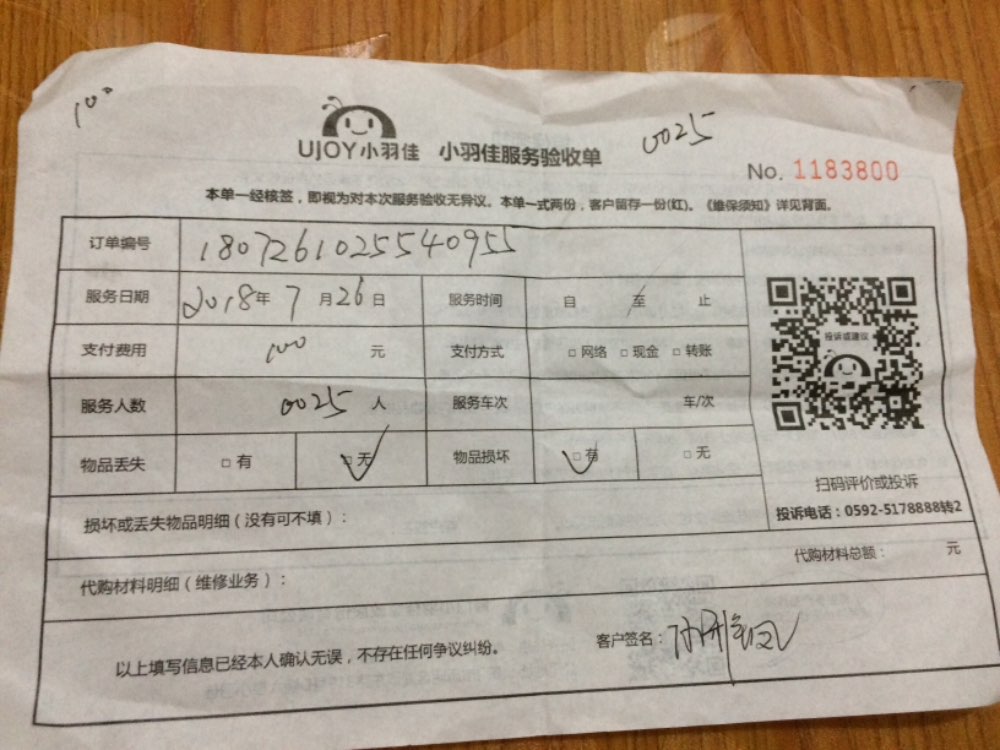 100
0025
UJOY小羽佳 小羽佳服务验收单
No. 1183800
本单一经核签，即视为对本次服务验收无异议。本单一式两份，客户留存一份(红)。《维保须知》详见背面。
订单编号 18072610255540955
服务日期 2018年 7 月 26 日 服务时间 自 至 止
支付费用 100 元 支付方式 □ 网络 □ 现金 □ 转账
投诉或建议
服务人数 0025 人 服务车次 车/次
物品丢失 □ 有 □ 无 物品损坏 □ 有 □ 无
扫码评价或投诉
投诉电话：0592-5178888转2
损坏或丢失物品明细（没有可不填）：
代购材料明细（维修业务）： 代购材料总额： 元
以上填写信息已经本人确认无误，不存在任何争议纠纷。 客户签名：